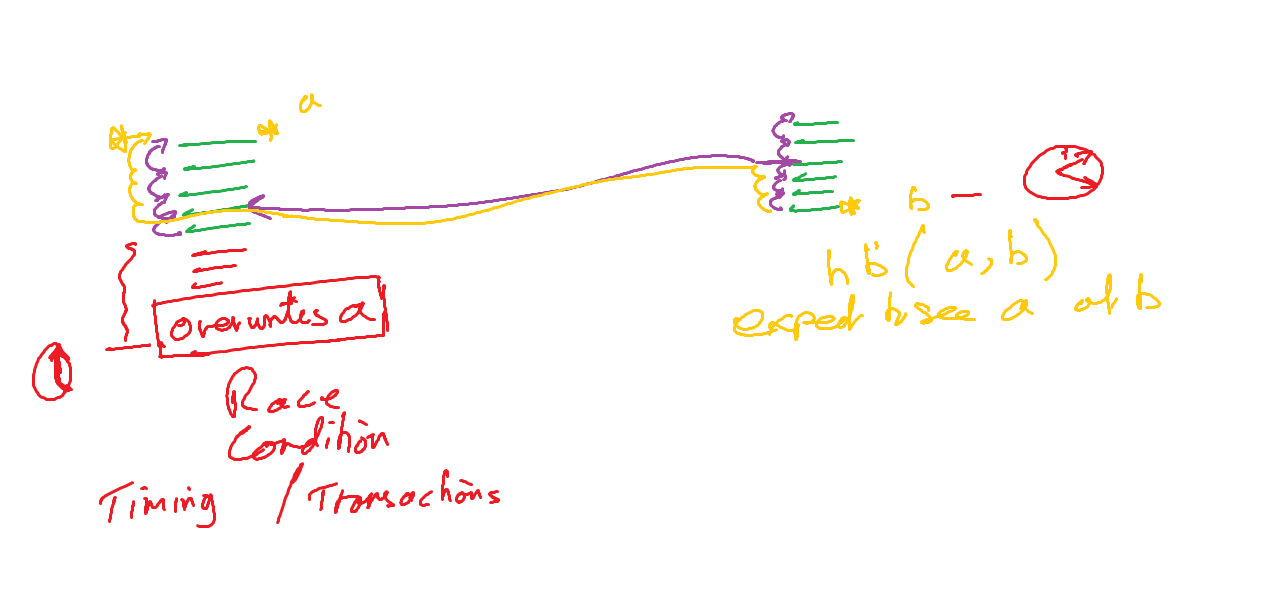 a
b
hb(a,b)
expect to see a at b
overwrites a
Race
Condition
Timing / Transactions